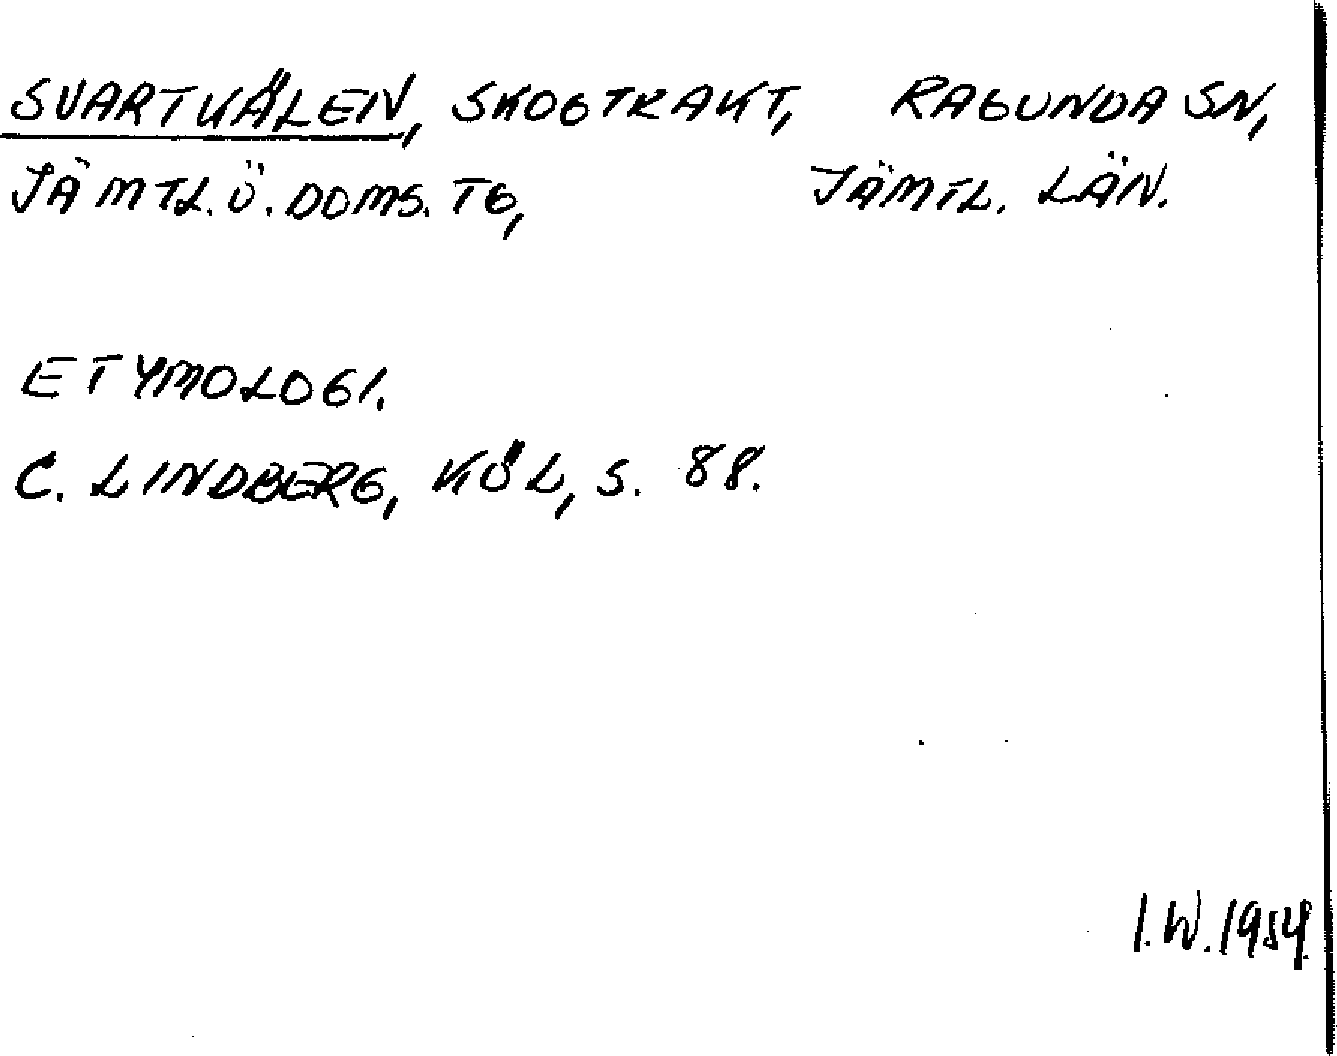 SVARTKÅLEN, SKOGTRAKT, RAGUNDA SN,
JÄMTL. Ö. DOMS. TG, JÄMTL. LÄN.
ETYMOLOGI.
C. LINDBERG, KÖL, S. 88.
I.W. 1954.